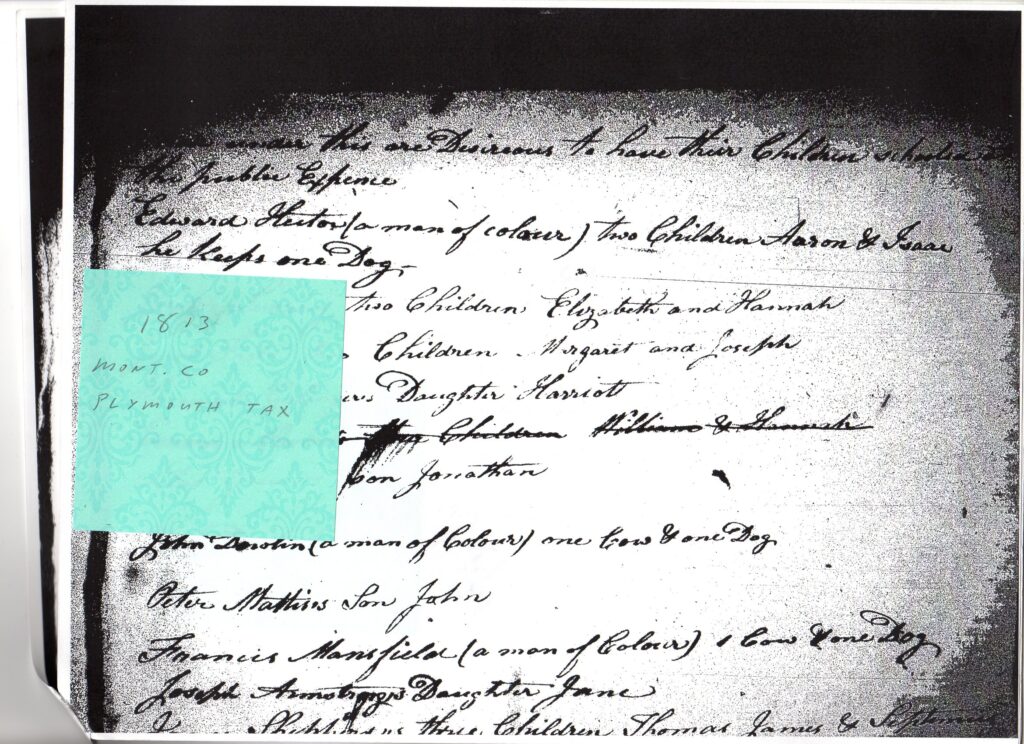 under this are Desireous to have their Children
the public Expence
Edward Hector (a man of colour) two Children Aaron & Isaac
he Keeps one Dog
two Children Elizabeth and Hannah
Children Margaret and Joseph
Daughter Harriott
Children William & Hannah
son Jonathan
1813
MONT. CO
PLYMOUTH TAX
John (a man of Colour) one Cow & one Dog
Peter Son John
Francis Mansfield (a man of Colour) 1 Cow & one Dog
Joseph Armstrongs Daughter Jane
three Children Thomas James &